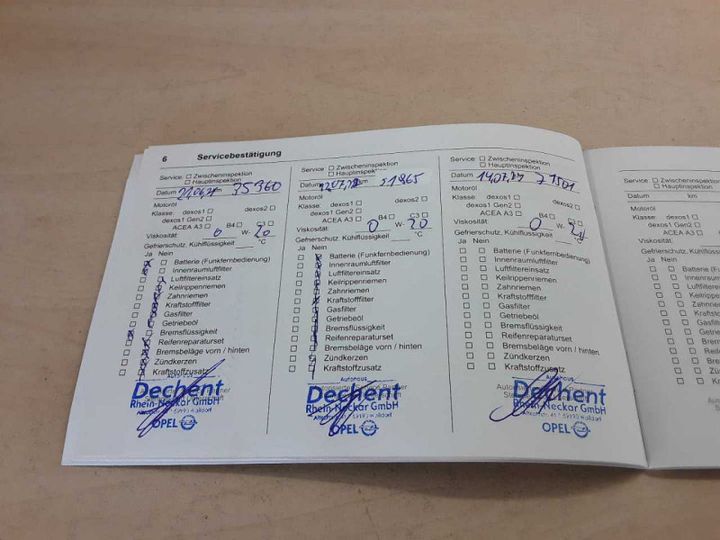 6 Servicebestätigung
Service: □ Zwischeninspektion
□ Hauptinspektion
Datum 35960
Motoröl
Klasse: dexos1 □
dexos1 Gen2 □
ACEA A3 □ B4 □ C3 □
Viskosität: 0 W- 20
Gefrierschutz, Kühlflüssigkeit °C
Ja Nein
Batterie (Funkfernbedienung)
Innenraumluftfilter
Luftfiltereinsatz
Keilrippenriemen
Zahnriemen
Kraftstofffilter
Gasfilter
Getriebeöl
Bremsflüssigkeit
Reifenreparaturset
Bremsbeläge vorn / hinten
Zündkerzen
Kraftstoffzusatz
Autohaus
Dechent
Rhein-Neckar GmbH
OPEL
Service: □ Zwischeninspektion
□ Hauptinspek
Datum km 51965
Motoröl
Klasse: dexos1 □
dexos1 Gen2 □
ACEA A3 □ B4 □ C3 □
Viskosität: 0 W- 20
Gefrierschutz, Kühlflüssigkeit °C
Ja Nein
Batterie (Funkfernbedienung)
Innenraumluftfilter
Luftfiltereinsatz
Keilrippenriemen
Zahnriemen
Kraftstofffilter
Gasfilter
Getriebeöl
Bremsflüssigkeit
Reifenreparaturset
Bremsbeläge vorn / hinten
Zündkerzen
Kraftstoffzusatz
Autohaus
Dechent
Rhein-Neckar GmbH
OPEL
Service: □ Zwischeninspektion
□ Hauptinspektion
Datum 71501
Motoröl
Klasse: dexos1 □
dexos1 Gen2 □
ACEA A3 □ B4 □ C3 □
Viskosität: 0 W-
Gefrierschutz, Kühlflüssigkeit °C
Ja Nein
Batterie (Funkfernbedienung)
Innenraumluftfilter
Luftfiltereinsatz
Keilrippenriemen
Zahnriemen
Kraftstofffilter
Gasfilter
Getriebeöl
Bremsflüssigkeit
Reifenreparaturset
Bremsbeläge vorn / hinten
Zündkerzen
Kraftstoffzusatz
Autohaus
Dechent
Rhein-Neckar GmbH
OPEL
Service: □ Zwischeninspektion
□ Hauptinspektion
Datum km
Motoröl
Klasse: dexos1 □
dexos1 Gen2 □
ACEA A3 □
Viskosität:
Gefrierschutz, Kühlflüs
Ja Nein
Batterie (Funkf
Innenraumluft
Luftfiltereinsa
Keilrippenrie
Zahnriemen
Kraftstofffilt
Gasfilter
Getriebeöl
Bremsflüs
Reifenrep
Bremsbe
Zündker
Kraftsto